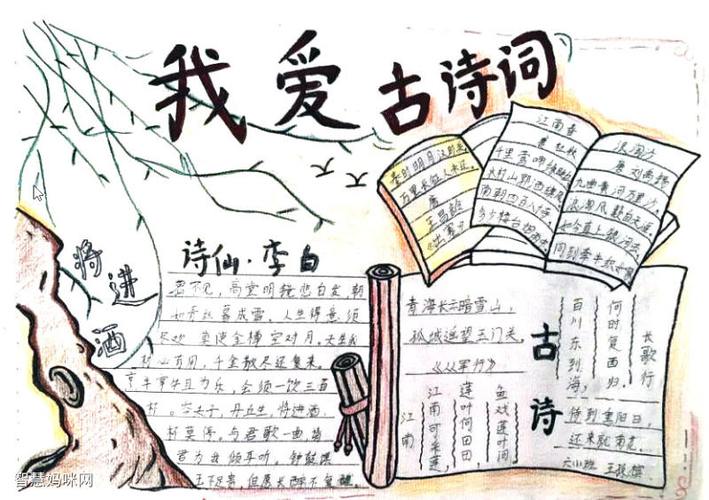 我爱古诗词
将进酒
诗仙·李白
君不见,高堂明镜悲白发,朝
如青丝暮成雪。人生得意须
尽欢 莫使金樽空对月。天生我
材必有用,千金散尽还复来。
且为乐,会须一饮三百
杯。岑夫子,丹丘生,将进酒,
杯莫停。与君歌一曲,请
君为我倾耳听。钟鼓馔
玉不足贵,但愿长醉不复醒
秦时明月汉时关,
万里长征人未还。
唐
王昌龄
《出塞》
江南春
唐 杜牧
千里莺啼绿映红
水村山郭酒旗风
南朝四百八十寺
多少楼台烟雨中
浪淘沙
唐 刘禹锡
九曲黄河万里沙,
浪淘风簸自天涯
如今直上银河去,
同到牵牛织女家
青海长云暗雪山,
孤城遥望玉门关。
《从军行》
江南
江南可采莲,
莲叶何田田,
鱼戏莲叶间
古诗
长歌行
百川东到海,
何时复西归,
待到重阳日,
还来就菊花
六小班
智慧妈咪网